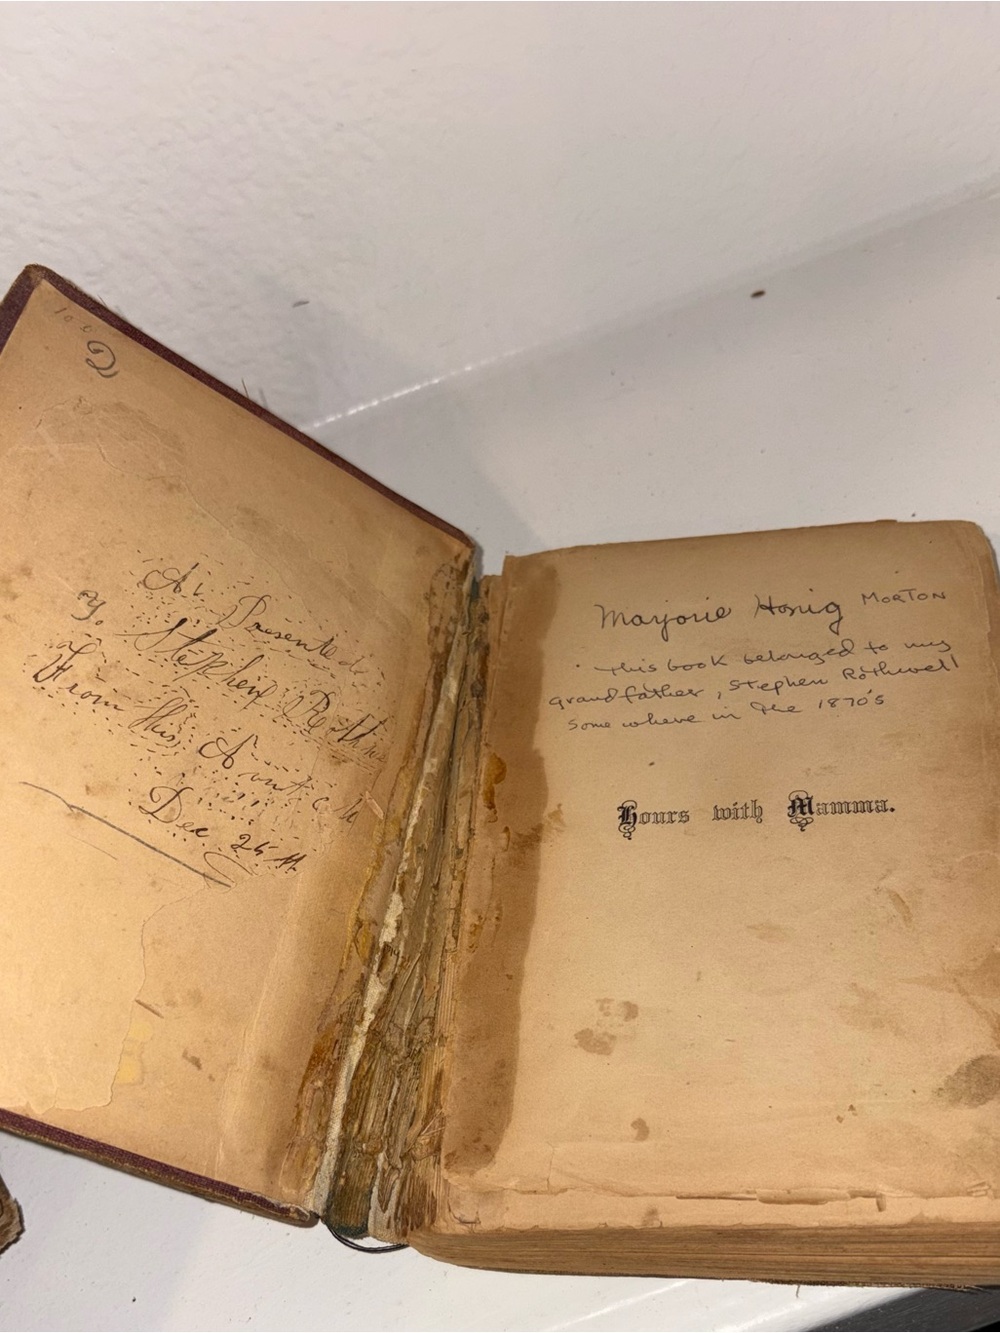 Presented
Stephen
From His Aunt
Dec 25th
Marjorie Honig MORTON
This book belonged to my
grandfather, Stephen Rothwell
Some where in the 1870's
Hours with Mamma.